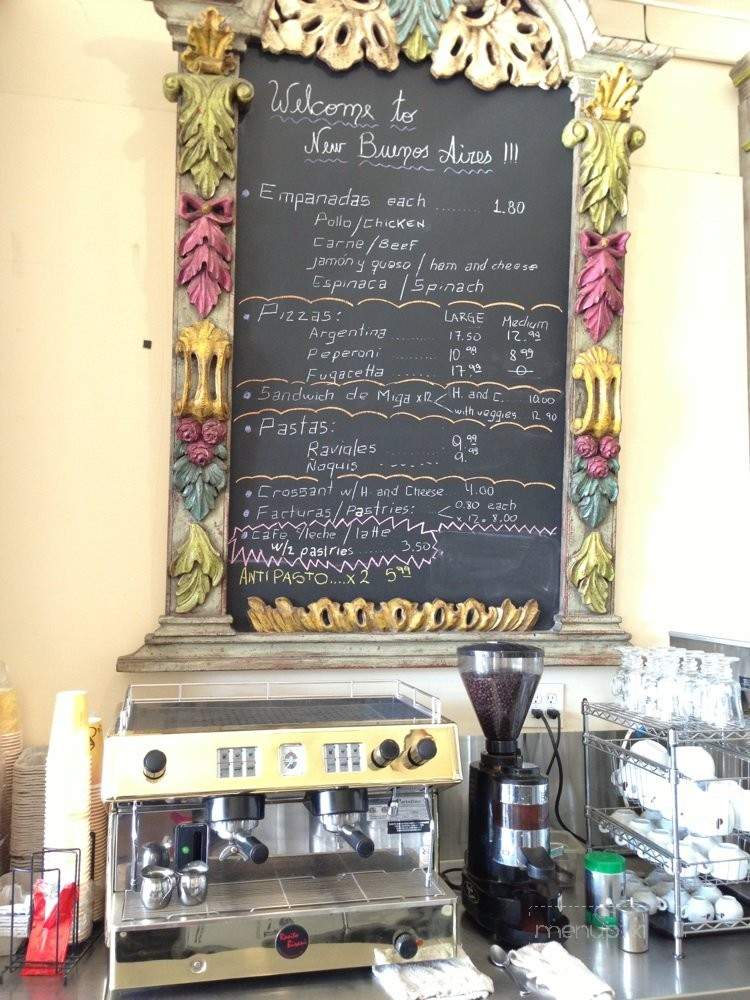 Welcome to
New Buenos Aires !!!
Empanadas each ........ 1.80
Pollo/CHICKEN
Carne/BEEF
jamón y queso / ham and cheese
Espinaca / Spinach
Pizzas: LARGE Medium
Argentina ........ 17.50 12.99
Peperoni ........ 10.99 8.99
Fugacetta ........ 17.99 -0-
Sandwich de Miga x12 < H. and C. 10.00
with veggies. 12.90
Pastas:
Raviales ........ 9.99
Ñoquis - - - - - - - 9.99
Crossant w/H and Cheese 4.00
Facturas/Pastries: < 0.80 each
x 12. 8.00
Cafe /leche / latte
w/2 pastries ........ 3.50
ANTIPASTO....x2 5.99
Rosito Bisani
menupix